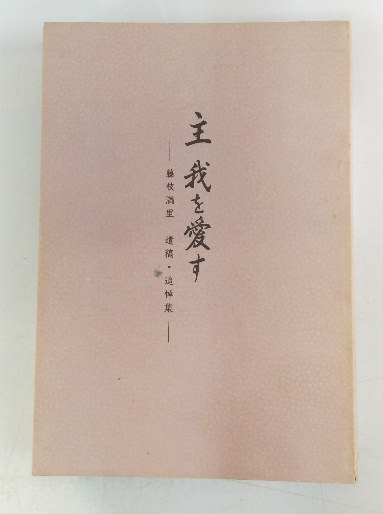 主 我を愛す
―藤枝満里 遺稿・追悼集―